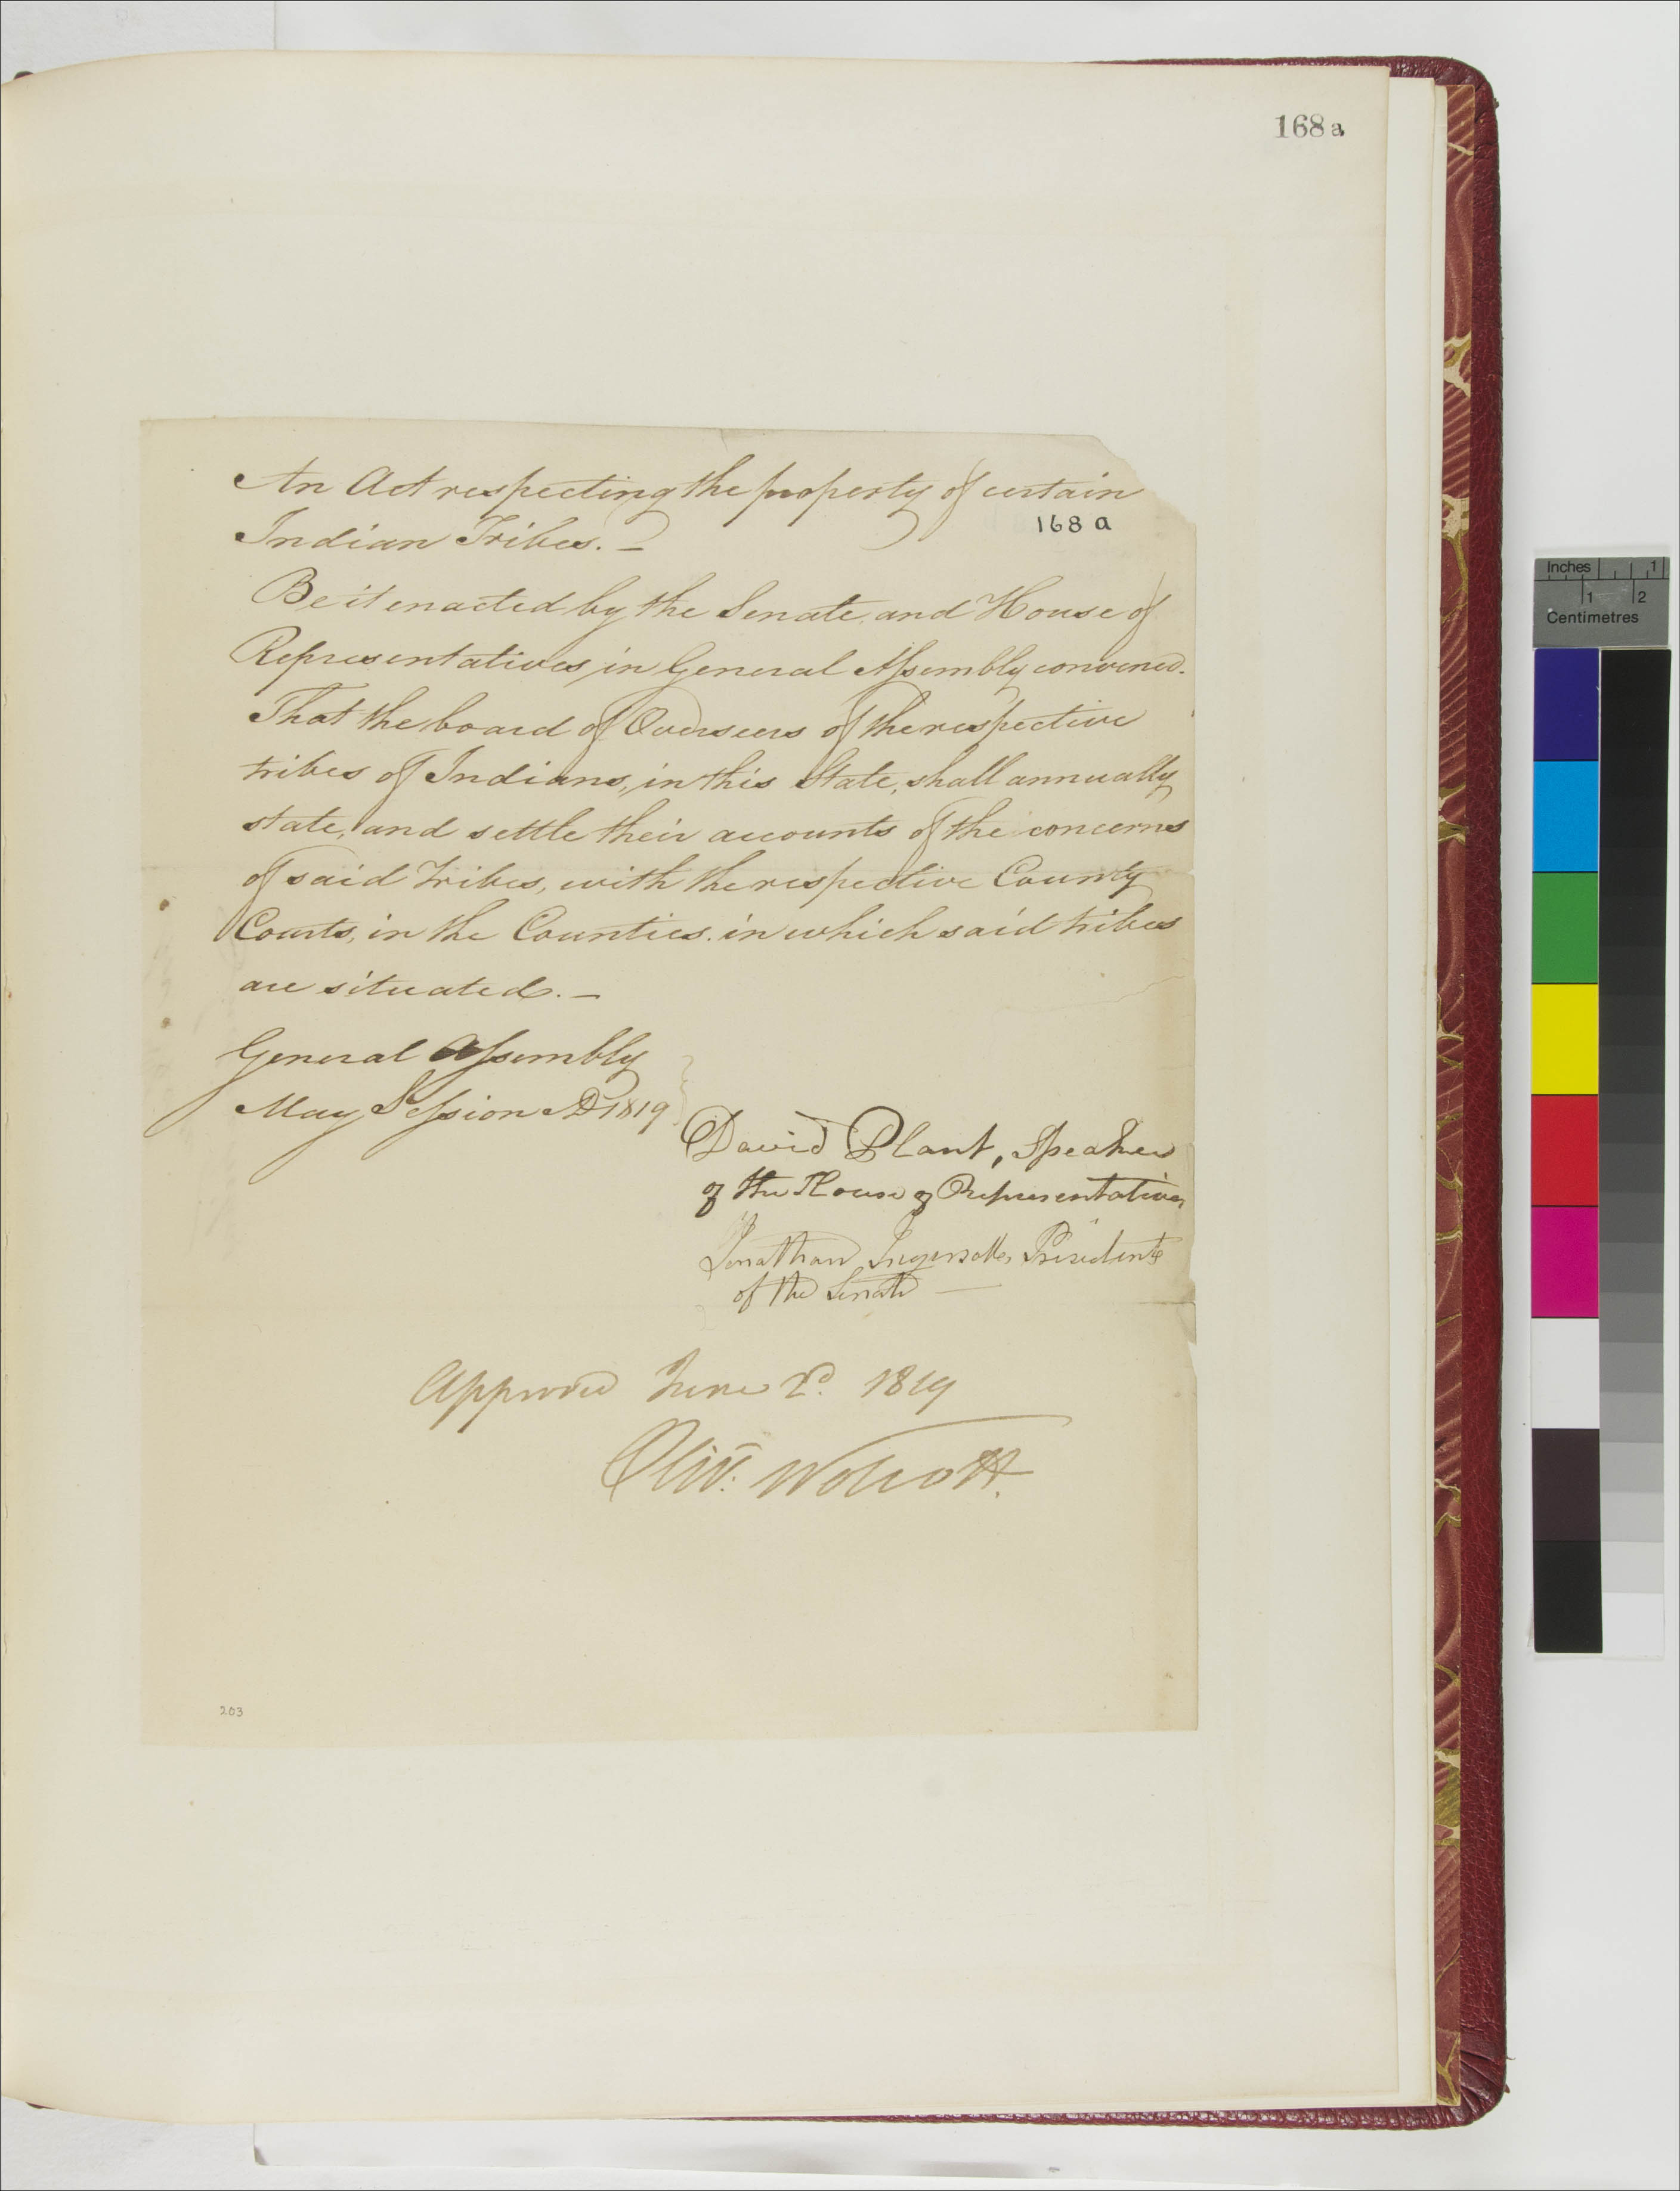 168 a
An Act respecting the property of certain
168 a
Indian Tribes. —
Be it enacted by the Senate, and House of
Representatives, in General Assembly convened.
That the board of Overseers of the respective
tribes of Indians, in this State, shall annually
state, and settle their accounts of the concerns
of said tribes, with the respective County
Courts, in the Counties. in which said tribes
are situated. —
General Assembly
May Session AD 1819
David Plant, Speaker
of the House of Representatives
Jonathan Ingersoll, President
of the Senate —
Approved June 2d. 1819
Oliv: Wolcott.
203
Inches 1
1 2
Centimetres